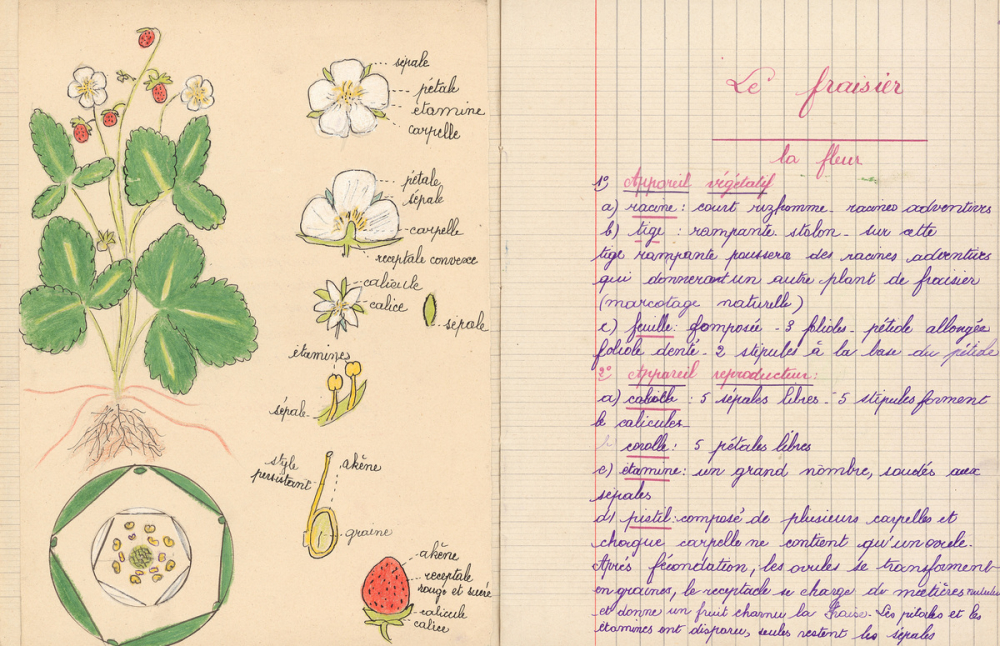 sépale
pétale
étamine
carpelle
pétale
sépale
carpelle
receptale convexe
calicule
calice
sépale
étamines
sépale
style
persistant
akène
graine
akène
receptale
rouge et sucré
calicule
calice
Le fraisier
la fleur
1° Appareil végétatif
a) racine : court rizhomme - racines adventives
b) tige : rampante - stolon - sur cette
tige rampante poussera des racines adventives
qui donneront un autre plant de fraisier
(marcotage naturelle)
c) feuille : Composée - 3 folioles - pétiole allongée
foliole denté - 2 stipules à la base du pétiole
2° Appareil reproducteur :
a) : 5 sépales libres - 5 stipules forment
le calicules
corolle : 5 pétales libres
c) étamine : un grand nombre, soudés aux
sépales
d) pistil : composé de plusieurs carpelles et
chaque carpelle ne contient qu'un ovule.
Après fécondation, les ovules se transforment
en graines, le receptacle se charge de matières
et donne un fruit charnu la fraise - Les pétales et les
étamines ont disparu, seules restent les sépales